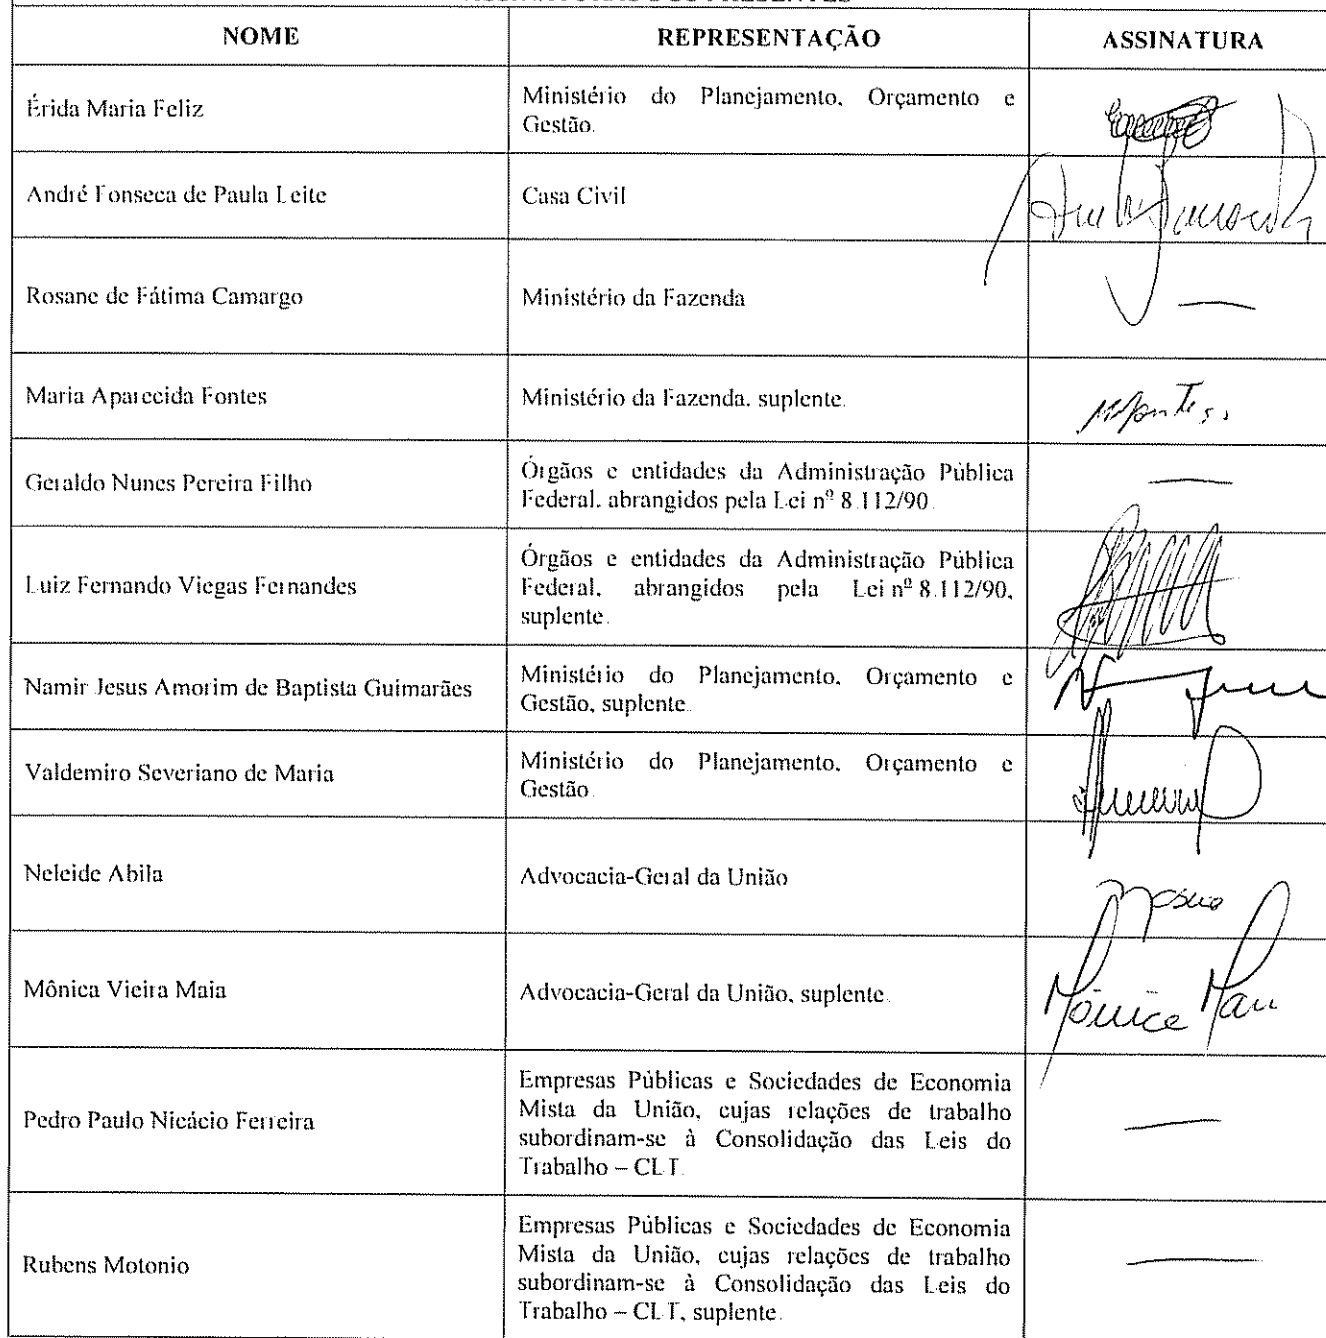 NOME
REPRESENTAÇÃO
ASSINATURA
Érida Maria Feliz
Ministério do Planejamento, Orçamento e
Gestão.
André Fonseca de Paula Leite
Casa Civil
Rosane de Fátima Camargo
Ministério da Fazenda
—
Maria Aparecida Fontes
Ministério da Fazenda, suplente.
Geraldo Nunes Pereira Filho
Órgãos e entidades da Administração Pública
Federal, abrangidos pela Lei nº 8.112/90.
—
Luiz Fernando Viegas Fernandes
Órgãos e entidades da Administração Pública
Federal, abrangidos pela Lei nº 8.112/90,
suplente.
Namir Jesus Amorim de Baptista Guimarães
Ministério do Planejamento, Orçamento e
Gestão, suplente.
Valdemiro Severiano de Maria
Ministério do Planejamento, Orçamento e
Gestão.
Neleide Abila
Advocacia-Geral da União
Mônica Vieira Maia
Advocacia-Geral da União, suplente.
Mônica
Pedro Paulo Nicácio Ferreira
Empresas Públicas e Sociedades de Economia
Mista da União, cujas relações de trabalho
subordinam-se à Consolidação das Leis do
Trabalho – CLT.
—
Rubens Motonio
Empresas Públicas e Sociedades de Economia
Mista da União, cujas relações de trabalho
subordinam-se à Consolidação das Leis do
Trabalho – CLT, suplente.
—